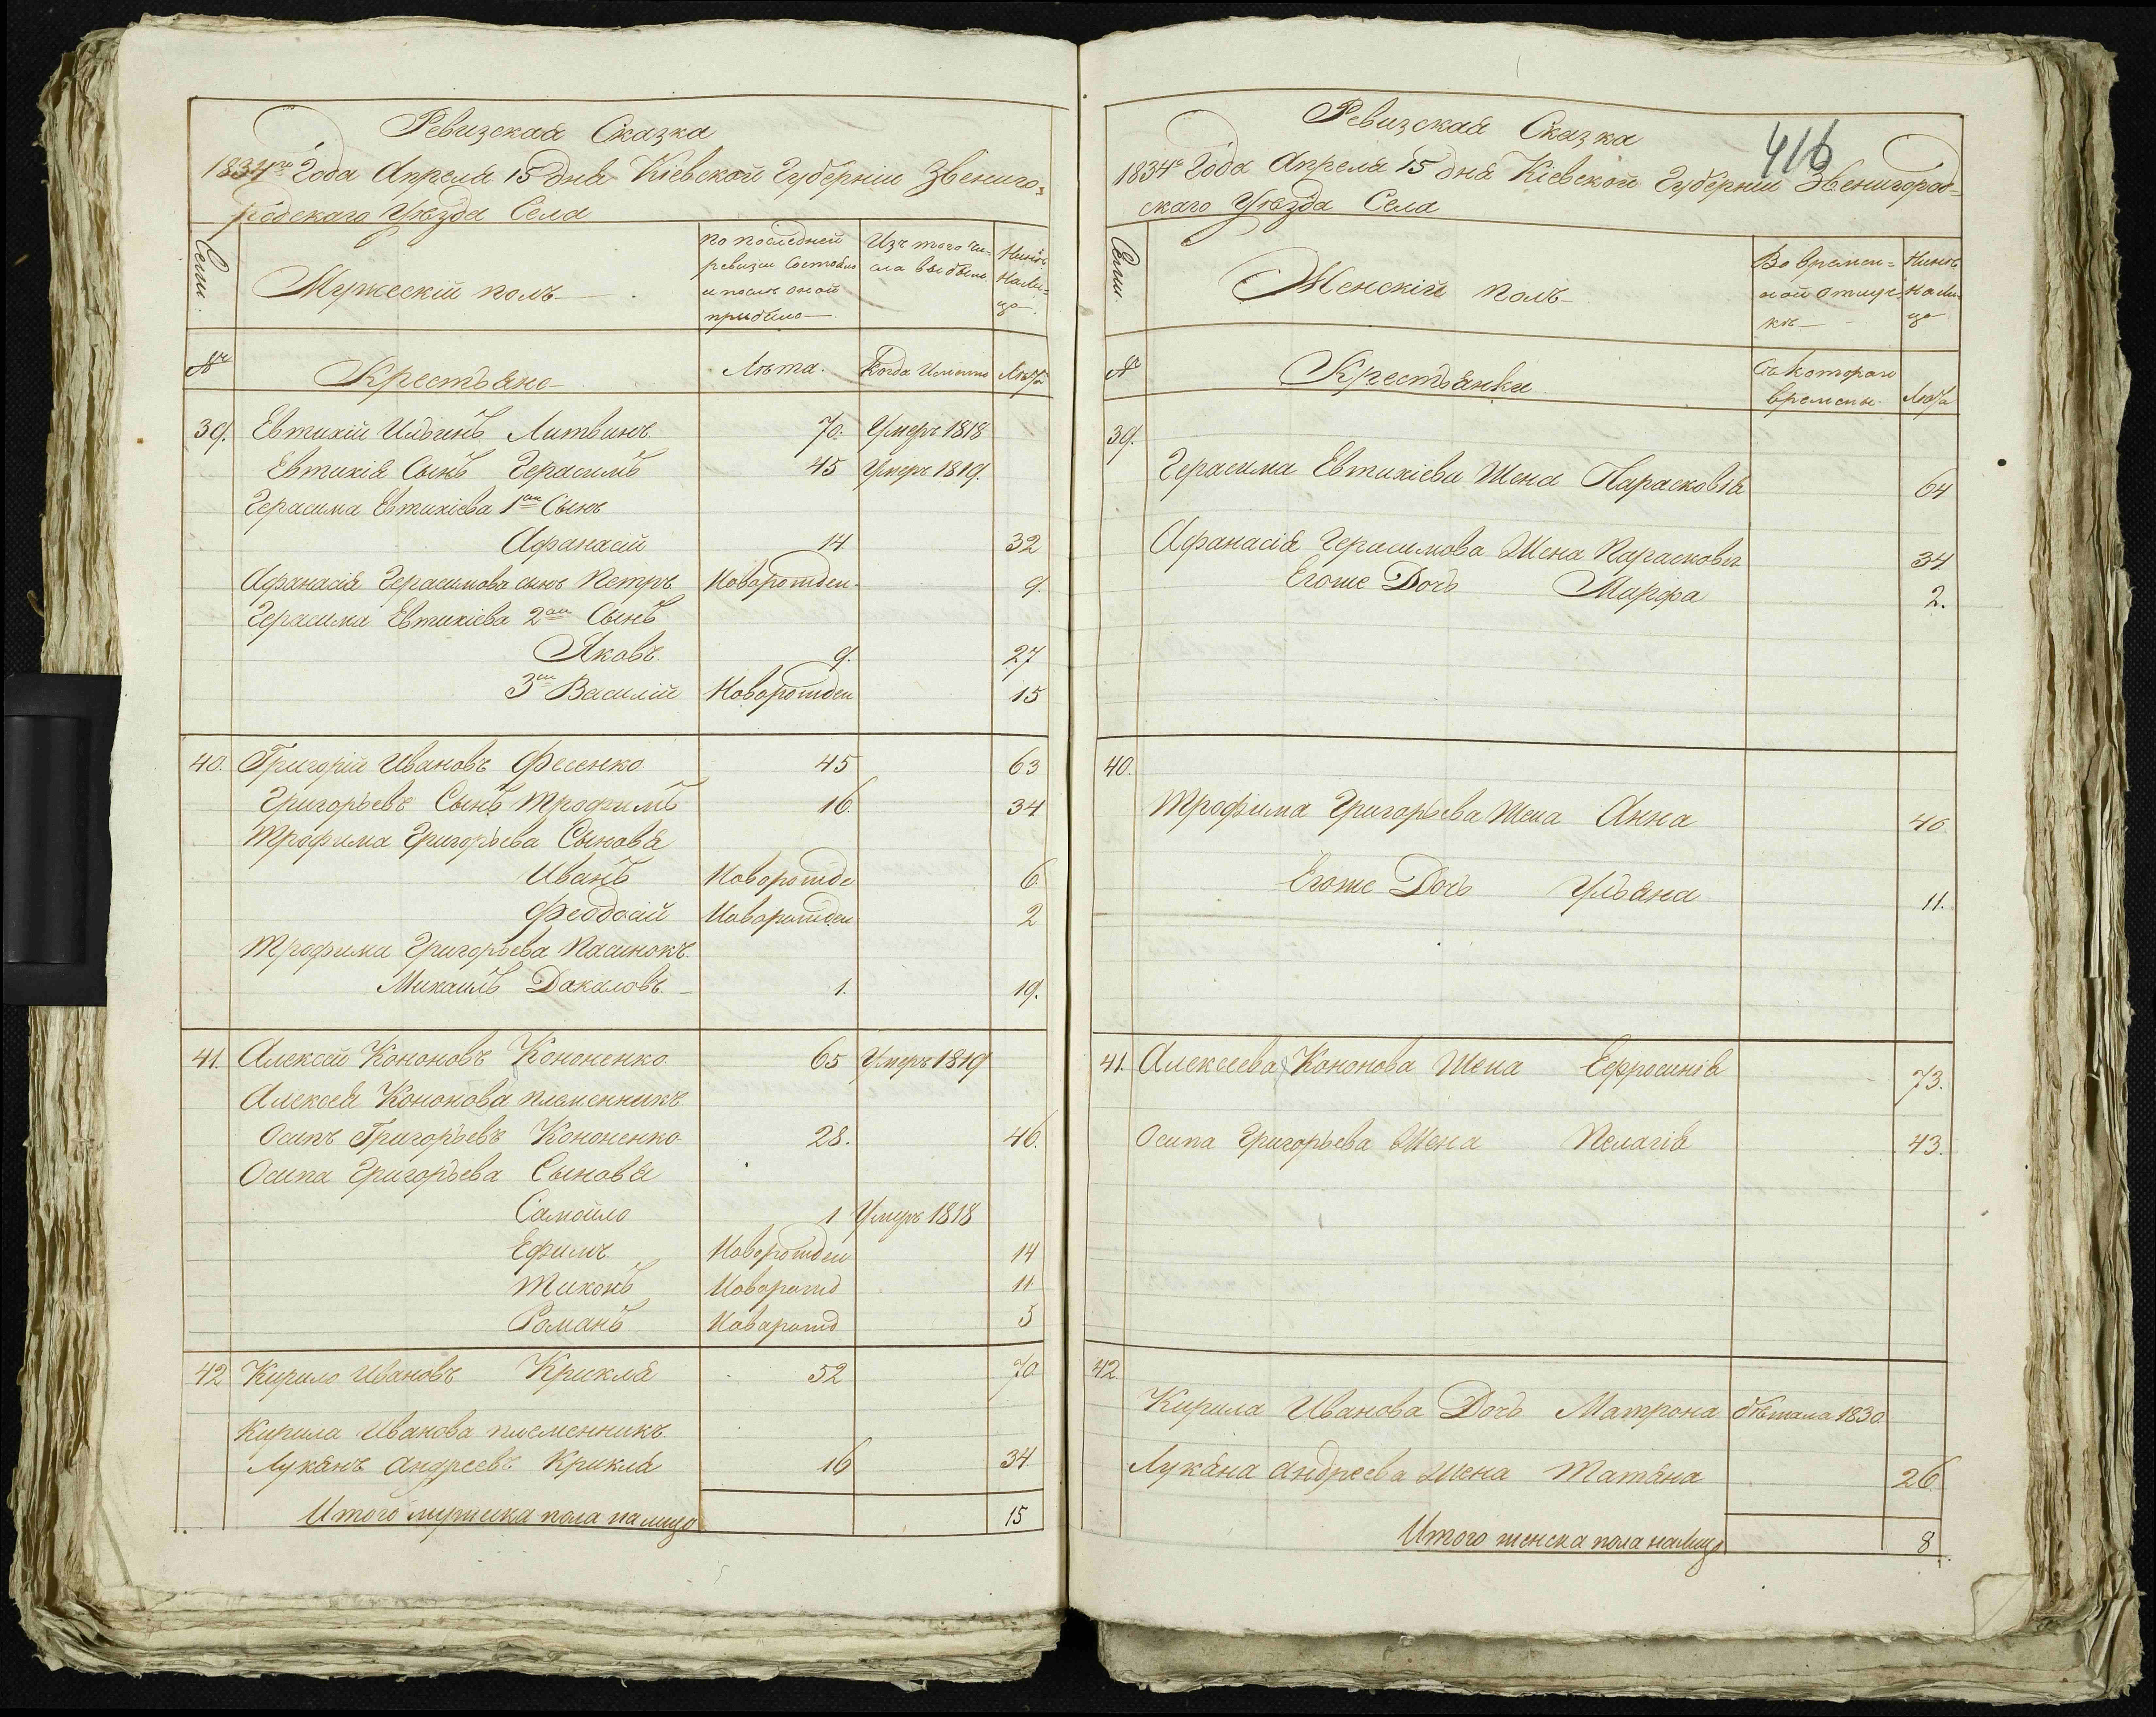 Ревизская Сказка
1834го Года Апреля 15 дня Кіевской Губерніи Звениго=
родскаго Уѣзда Села
Семьи
Мужескій полъ
По последней
ревизіи Состояло
и послѣ оной
прибыло
Изъ того чи-
сла выбыло
Нынѣ
На Ли-
цо
№
Крестьяне
Лѣта.
Когда Именно
Лѣта
39. Евтихій Ильинъ Литвинъ 70. Умеръ 1818
Евтихія Сынъ Герасимъ 45 Умеръ 1819.
Герасима Евтихіева 1ой Сынъ
Афанасій 14 32
Афанасія Герасимова сынъ Петръ Новорожден. 9.
Герасима Евтихіева 2ой Сынъ
Яковъ. 9. 27
3ій Василій Новорожден 15
40. Григорій Ивановъ Фесенко 45 63
Григорьевъ Сынъ Трофимъ 16. 34
Трофима Григорьева Сыновья
Иванъ Новорожде 6
Феодосій Новорожден 2
Трофима Григорьева Пасинокъ.
Михаилъ Дакаловъ. 1. 19.
41. Алексей Кононовъ Кононенко 65 Умеръ 1819
Алексея Кононова племенникъ
Осипъ Григорьевъ Кононенко 28. 46.
Осипа Григорьева Сыновья
Самойло 1 Умеръ 1818
Ефимъ Новорожден 14
Тихонъ Новорожд 11
Романъ Новорожд 5
42 Кирило Ивановъ Крикля 52 70
Кирила Иванова племенникъ
Лукянъ Андреевъ Крикля 16 34
Итого мужеска пола налицо 15
416
Ревизская Сказка
1834го Года Апреля 15 дня Кіевской Губерніи Звенигород-
скаго Уѣзда Села
Семьи
Женскій полъ
Во времен=
ной отлуч-
кѣ
Нынѣ
На Ли-
цо
№
Крестьянки
Съ котораго
времены.
Лѣта
39.
Герасима Евтихіева Жена Парасковія 64
Афанасія Герасимова Жена Парасковія 34
Егоже Дочь Марфа 2.
40.
Трофима Григорьева Жена Анна 40
Егоже Дочь Ульяна 11.
41. Алексеева Кононова Жена Ефросинія 73.
Осипа Григорьева Жена Пелагія 43.
42.
Кирила Иванова Дочь Матрона бѣжала 1830
Лукяна Андреева Жена Татяна 26
Итого женска пола налицо 8